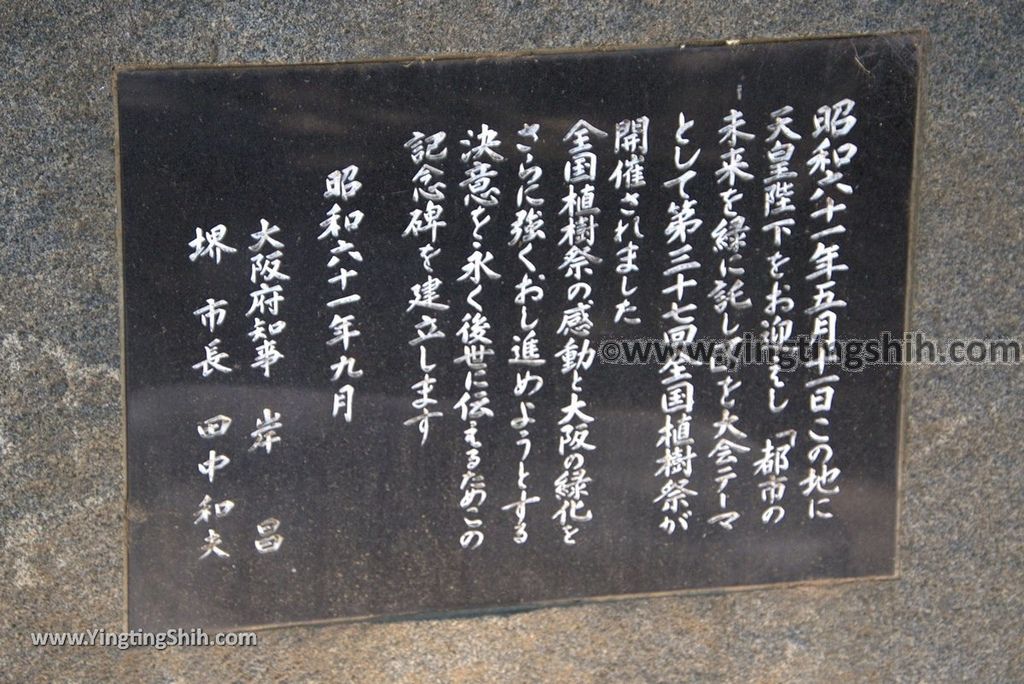 昭和六十一年五月十一日この地に
天皇陛下をお迎えし「都市の
未来を緑に託して」を大会テーマ
として第三十七回全国植樹祭が
開催されました
全国植樹祭の感動と大阪の緑化を
さらに強くおし進めようとする
決意を永く後世に伝えるためこの
記念碑を建立します
昭和六十一年九月
大阪府知事 岸 昌
堺市長 田中和夫
©www.YingtingShih.com
www.YingtingShih.com